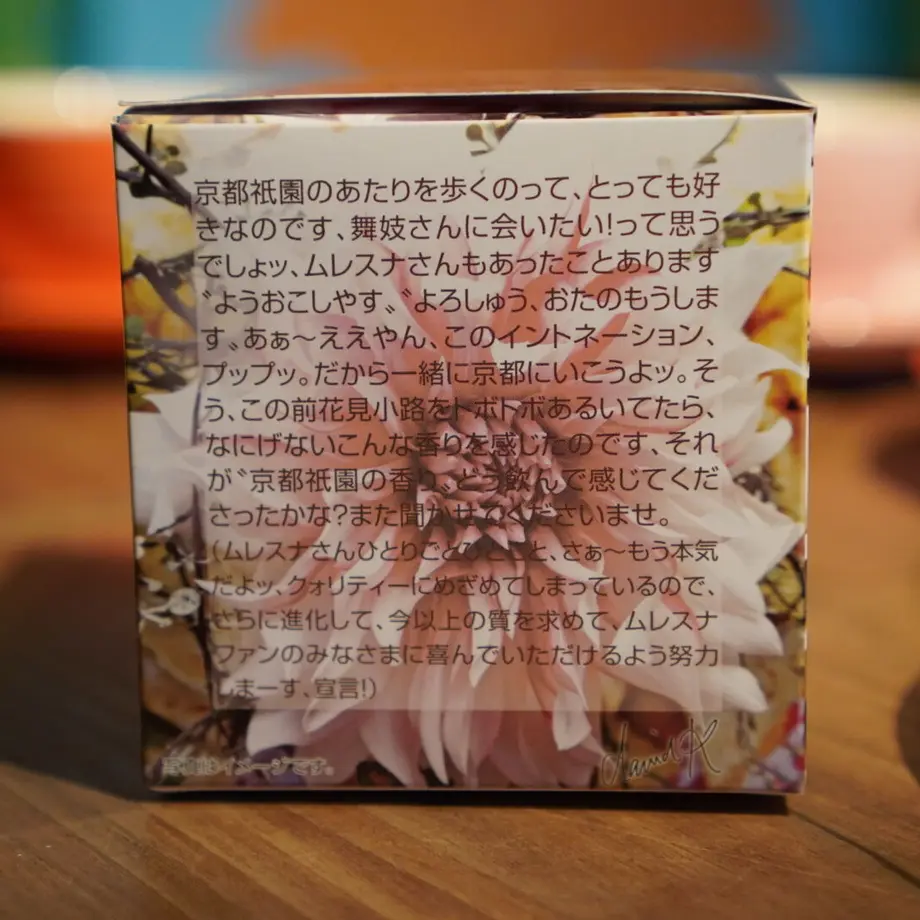 京都祇園のあたりを歩くのって、とっても好
きなのです、舞妓さんに会いたい!って思う
でしょッ、ムレスナさんもあったことあります
〝ようおこしやす〟〝よろしゅう、おたのもうしま
す〟あぁ〜ええやん、このイントネーション、
プップッ。だから一緒に京都にいこうよッ。そ
う、この前花見小路をトボトボあるいてたら、
なにげないこんな香りを感じたのです、それ
が〝京都祇園の香り〟どう飲んで感じてくだ
さったかな?また聞かせてくださいませ。
(ムレスナさんひとりごとひとこと、さぁ〜もう本気
だよッ、クォリティーにめざめてしまっているので、
さらに進化して、今以上の質を求めて、ムレスナ
ファンのみなさまに喜んでいただけるよう努力
しまーす、宣言!)
写真はイメージです。